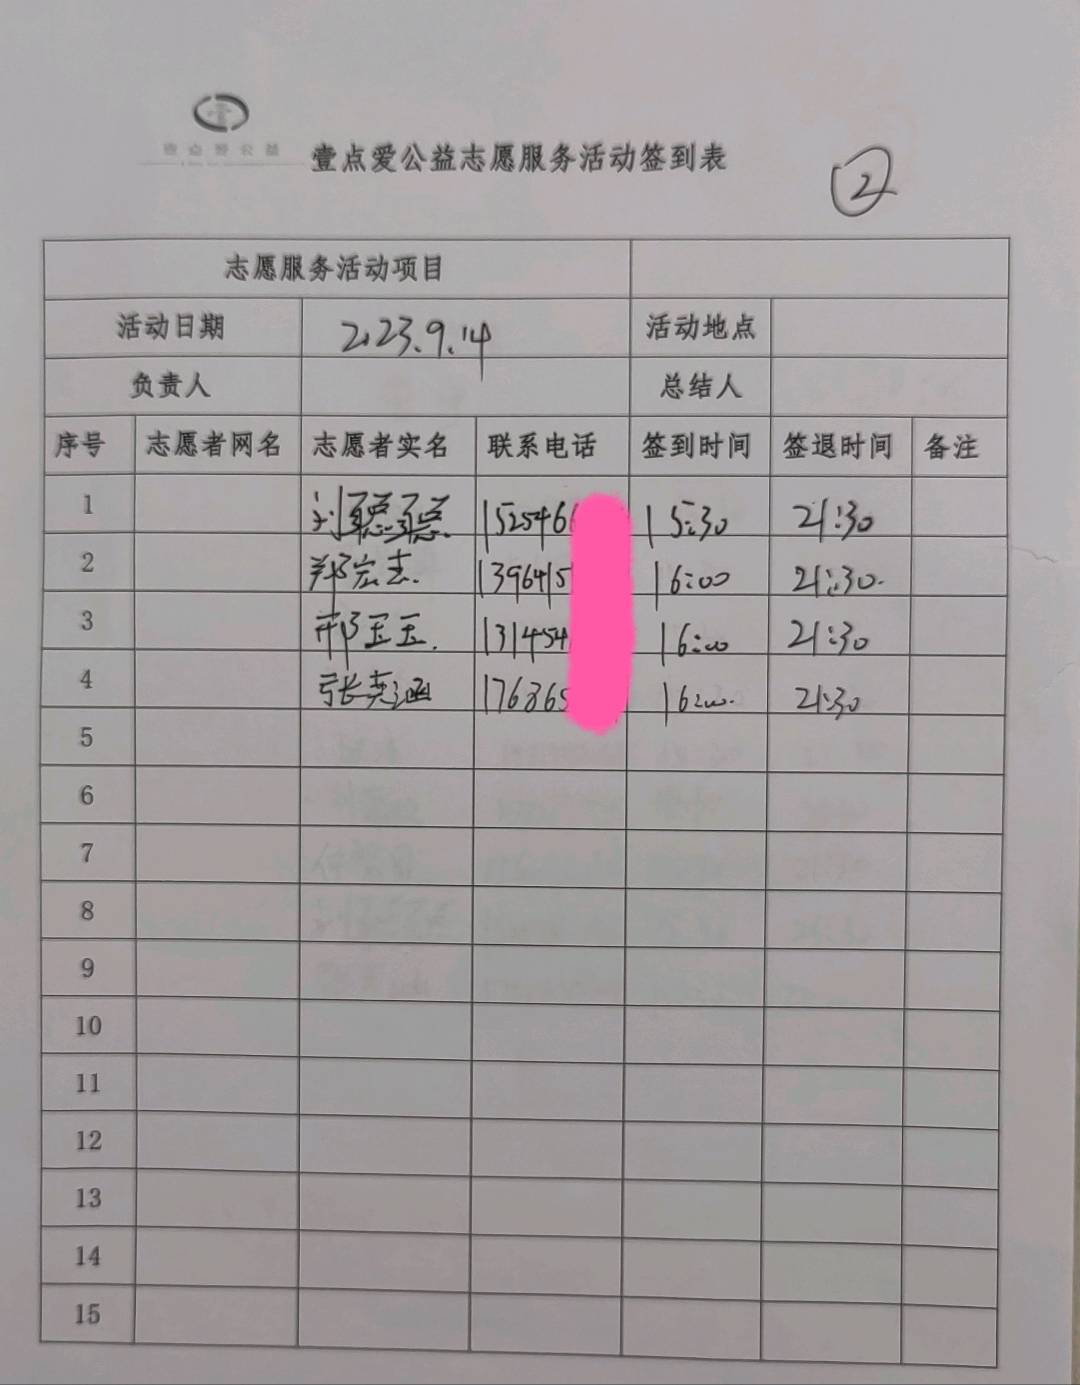 壹点爱公益
壹点爱公益志愿服务活动签到表
2
志愿服务活动项目
活动日期 2023.9.14 活动地点
负责人 总结人
序号 志愿者网名 志愿者实名 联系电话 签到时间 签退时间 备注
1 刘聪聪 152546 15:30 21:30
2 郑宏志. 1396415 16:00 21:30.
3 邢玉玉. 131454 16:00 21:30
4 张奕涵 176865 16:00. 21:30
5
6
7
8
9
10
11
12
13
14
15